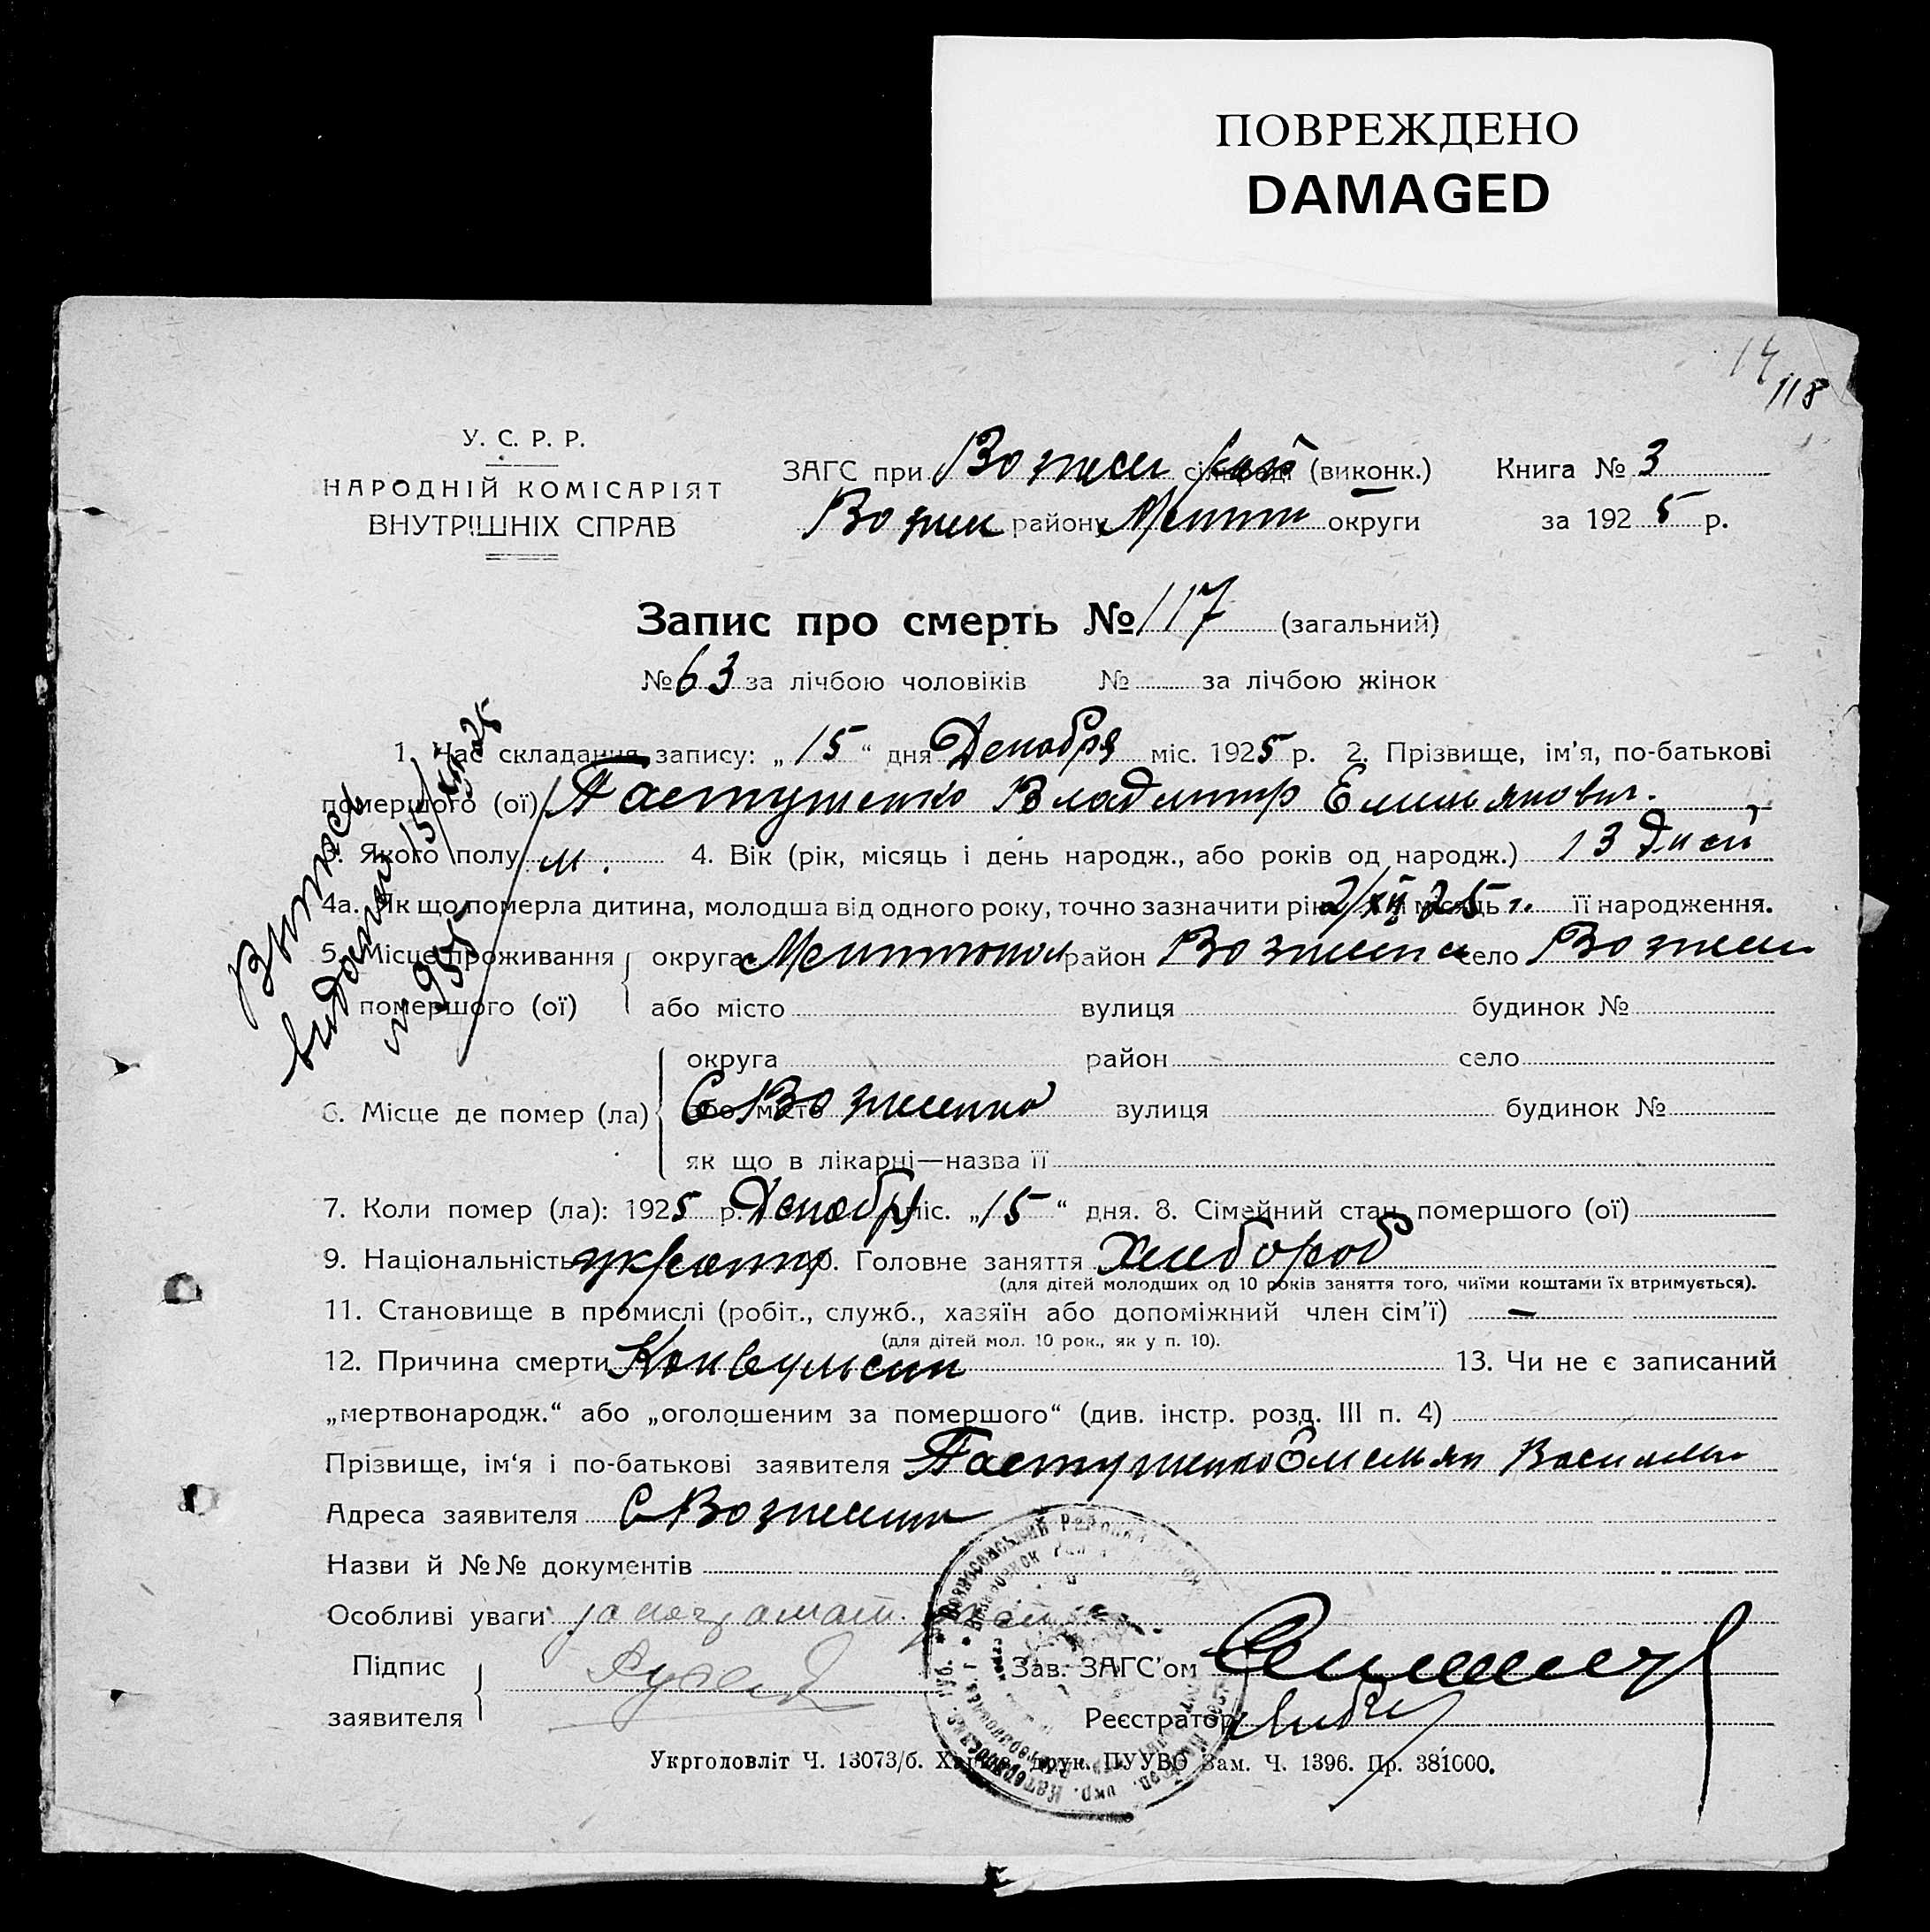 ПОВРЕЖДЕНО
DAMAGED
14
118
У. С. Р. Р.
НАРОДНІЙ КОМІСАРІЯТ
ВНУТРІШНІХ СПРАВ
ЗАГС при Вознесен сільраді (виконк.)
Вознес району Мелитоп округи
Книга № 3
за 1925 р.
Запис про смерть № 117 (загальний)
№ 63 за лічбою чоловіків № за лічбою жінок
1. Час складання запису: „15“ дня Декабря міс. 1925 р. 2. Прізвище, ім’я, по-батькові
помершого (ої) Пастушенко Владимир Емельянович.
3. Якого полу м. 4. Вік (рік, місяць і день народж., або років од народж.) 13 дней
4а. Як що померла дитина, молодша від одного року, точно зазначити рік 2/XII 25 г. місяць її народження.
5. Місце проживання помершого (ої) округа Мелитопол район Вознесен село Вознесен
або місто вулиця будинок №
округа район село
6. Місце де помер (ла) або місто С Вознесенка вулиця будинок №
як що в лікарні—назва її
7. Коли помер (ла): 1925 р. Декабря міс. „15“ дня. 8. Сімейний стан помершого (ої)
9. Національність украинц 10. Головне заняття Хлебороб
(для дітей молодших од 10 років заняття того, чиїми коштами їх втримується).
11. Становище в промислі (робіт., служб., хазяїн або допоміжний член сім’ї) —
(для дітей мол. 10 рок., як у п. 10).
12. Причина смерти Конвульсии 13. Чи не є записаний
„мертвонародж.“ або „оголошеним за помершого“ (див. інстр. розд. III п. 4)
Прізвище, ім‘я і по-батькові заявителя Пастушенко Емельян Васильев
Адреса заявителя С Вознесенк
Назви й №№ документів
Особливі уваги за неграмотн.
Підпис заявителя
Зав. ЗАГС’ом
Реєстратор
Укрголовліт Ч. 13073/б. Харків, друк. ПУУВО Зам. Ч. 1396. Пр. 381000.
Выпись
видана 15/XII 25
№ 955